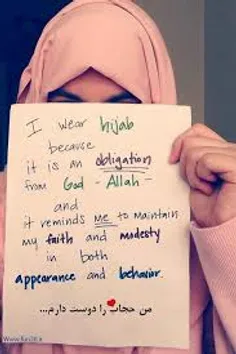 I wear hijab
because
it is an obligation
from God - Allah -
and
it reminds me to maintain
my faith and modesty
in both
appearance and behavior.
من حجاب را دوست دارم...